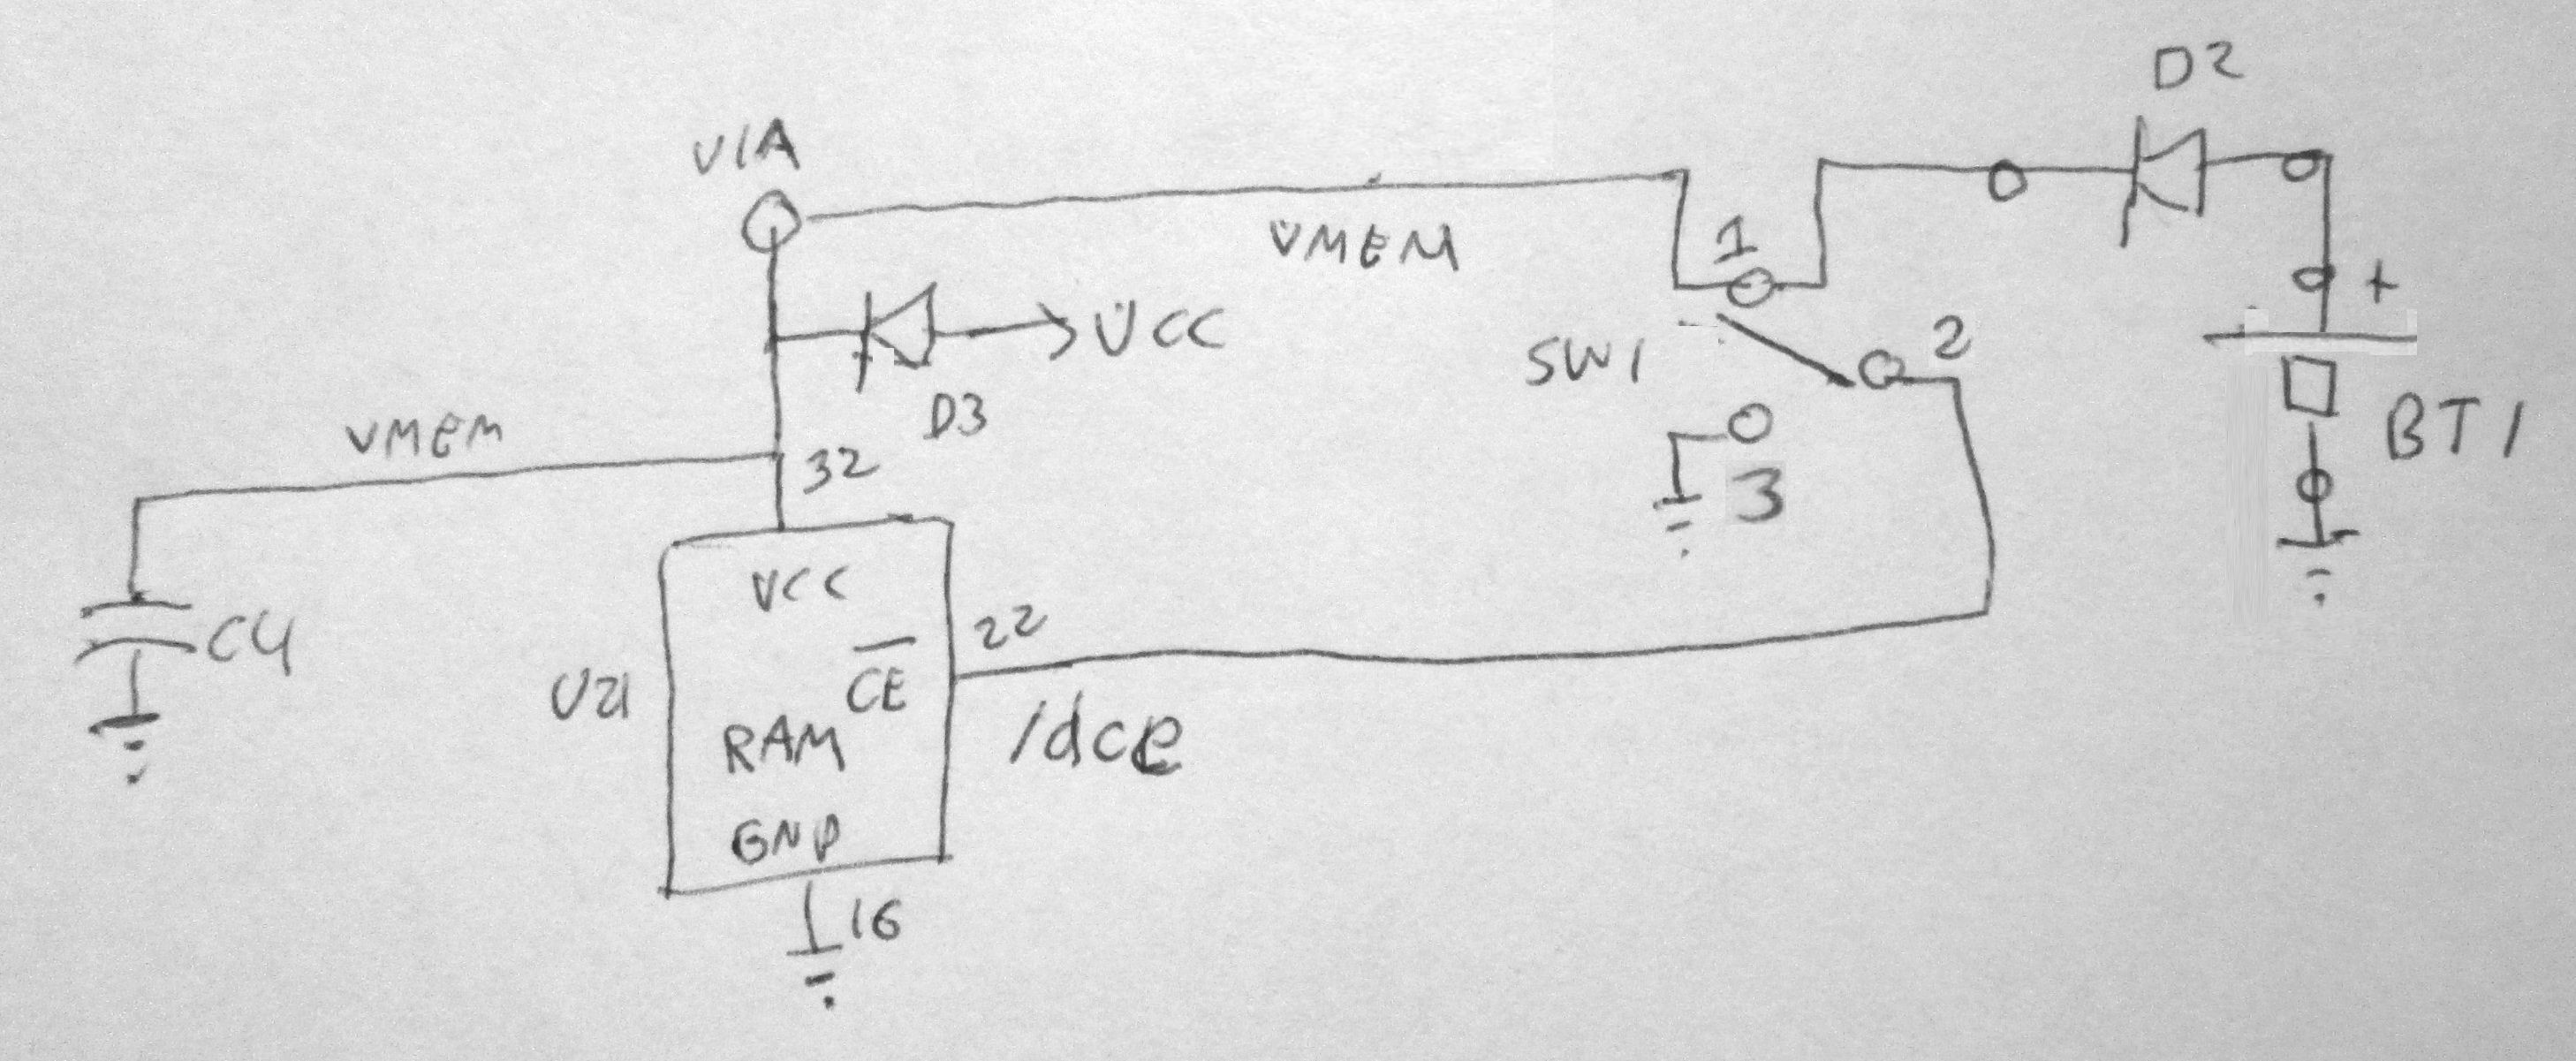 D2
VIA
VMEM
1
+
VCC
SW1
2
D3
BT1
VMEM
32
3
VCC
22
C4
CE
U21
/dce
RAM
GND
16